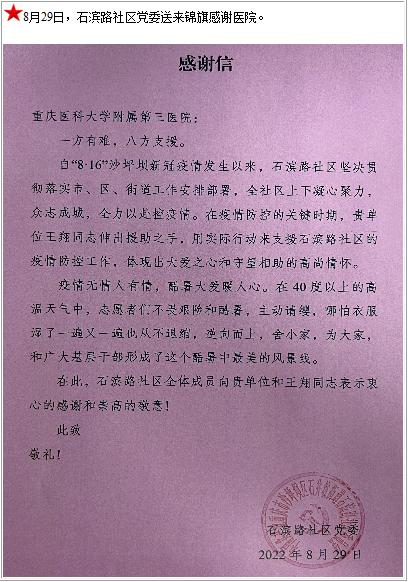 8月29日，石滨路社区党委送来锦旗感谢医院。
感谢信
重庆医科大学附属第三医院：
一方有难，八方支援。
自“8·16”沙坪坝新冠疫情发生以来，石滨路社区坚决贯
彻落实市、区、街道工作安排部署，全社区上下凝心聚力，
众志成城，全力以赴控疫情。在疫情防控的关键时期，贵单
位王翔同志伸出援助之手，用实际行动来支援石滨路社区的
疫情防控工作，体现出大爱之心和守望相助的高尚情怀。
疫情无情人有情，酷暑大爱暖人心。在 40 度以上的高
温天气中，志愿者们不畏艰险和酷暑，主动请缨，哪怕衣服
湿了一遍又一遍也从不退缩，逆向而上，舍小家，为大家，
和广大基层干部形成了这个酷暑中最美的风景线。
在此，石滨路社区全体成员向贵单位和王翔同志表示衷
心的感谢和崇高的敬意！
此致
敬礼！
石滨路社区党委
2022 年 8 月 29 日